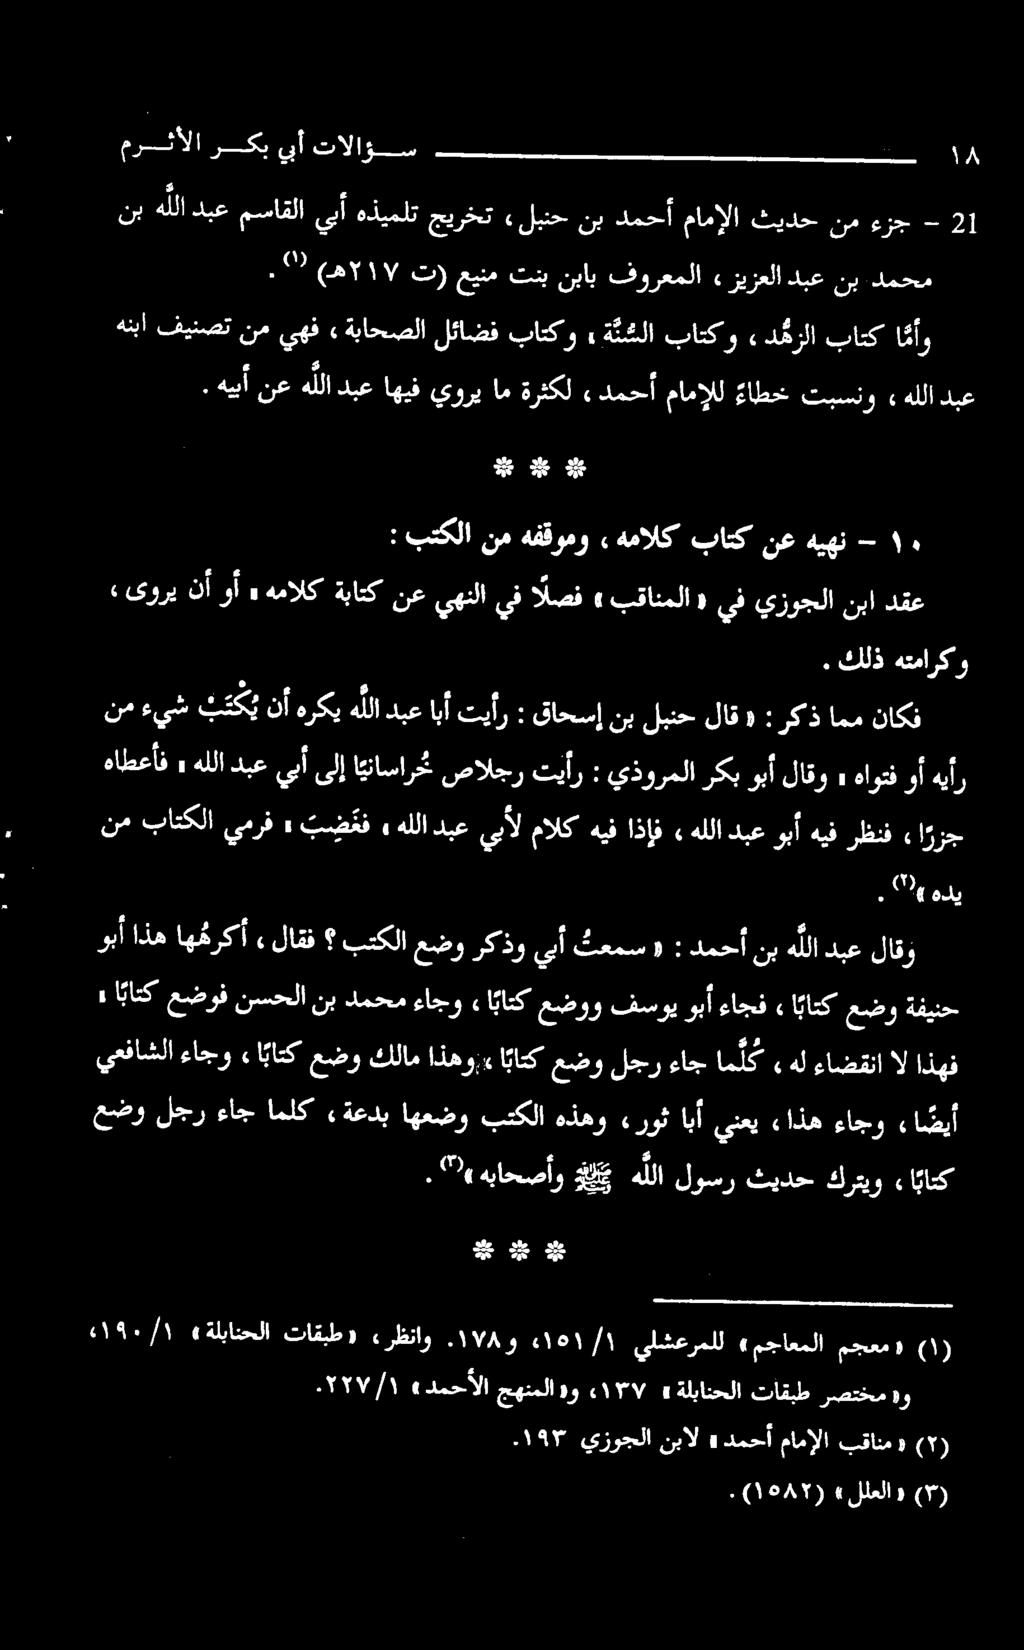 ١٨ ســؤالات أبي بكــر الأثــرم
21 - جزء من حديث الإمام أحمد بن حنبل ، تخريج تلميذه أبي القاسم عبد اللَّه بن
محمد بن عبد العزيز ، المعروف بابن بنت منيع (ت ٢١٧هـ) (١) .
وأمَّا كتاب الزُّهد ، وكتاب السُّنَّة ، وكتاب فضائل الصحابة ، فهي من تصنيف ابنه
عبد الله ، ونسبت خطاءً للإمام أحمد ، لكثرة ما يروي فيها عبد اللَّه عن أبيه .
* * *
١٠ - نهيه عن كتاب كلامه ، وموقفه من الكتب :
عقد ابن الجوزي في « المناقب » فصلًا في النهي عن كتابة كلامه ، أو أن يروى ،
وكرامته ذلك .
فكان مما ذكر : « قال حنبل بن إسحاق : رأيت أبا عبد اللَّه يكره أن يُكْتَبْ شيء من
رأيه أو فتواه ، وقال أبو بكر المروذي : رأيت رجلاً خُراسانيًا إلى أبي عبد الله ، فأعطاه
جزرًا ، فنظر فيه أبو عبد الله ، فإذا فيه كلام لأبي عبد الله ، فغَضِبَ ، فرمي الكتاب من
يده »(٢) .
وقال عبد اللَّه بن أحمد : « سمعتُ أبي وذكر وضع الكتب ؟ فقال ، أكرهُها هذا أبو
حنيفة وضع كتابًا ، فجاء أبو يوسف ووضع كتابًا ، وجاء محمد بن الحسن فوضع كتابًا ،
فهذا لا انقضاء له ، كُلَّما جاء رجل وضع كتابًا ، وهذا مالك وضع كتابًا ، وجاء الشافعي
أيضًا ، وجاء هذا ، يعني أبا ثور ، وهذه الكتب وضعها بدعة ، كلما جاء رجل وضع
كتابًا ، ويترك حديث رسول اللَّه ﷺ وأصحابه »(٣) .
* * *
(١) « معجم المعاجم » للمرعشلي ١/ ١٥١، و١٧٨. وانظر ، « طبقات الحنابلة » ١/ ١٩٠،
و« مختصر طبقات الحنابلة » ١٣٧، و« المنهج الأحمد » ١/ ٢٢٧.
(٢) « مناقب الإمام أحمد » لابن الجوزي ١٩٣.
(٣) « العلل » (١٥٨٢) .